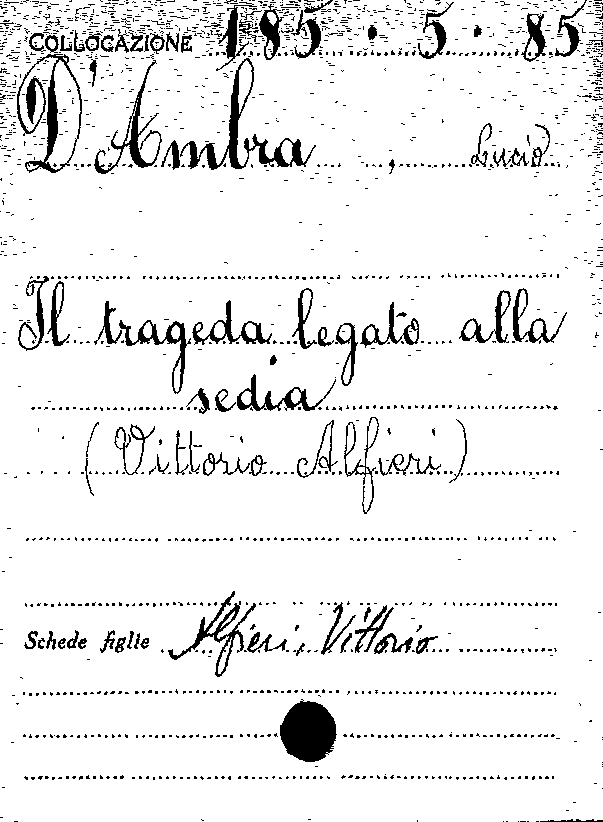 COLLOCAZIONE 185 · 5 · 85
D'Ambra, Lucio
Il trageda legato alla
sedia
(Vittorio Alfieri)
Schede figlie Alfieri, Vittorio